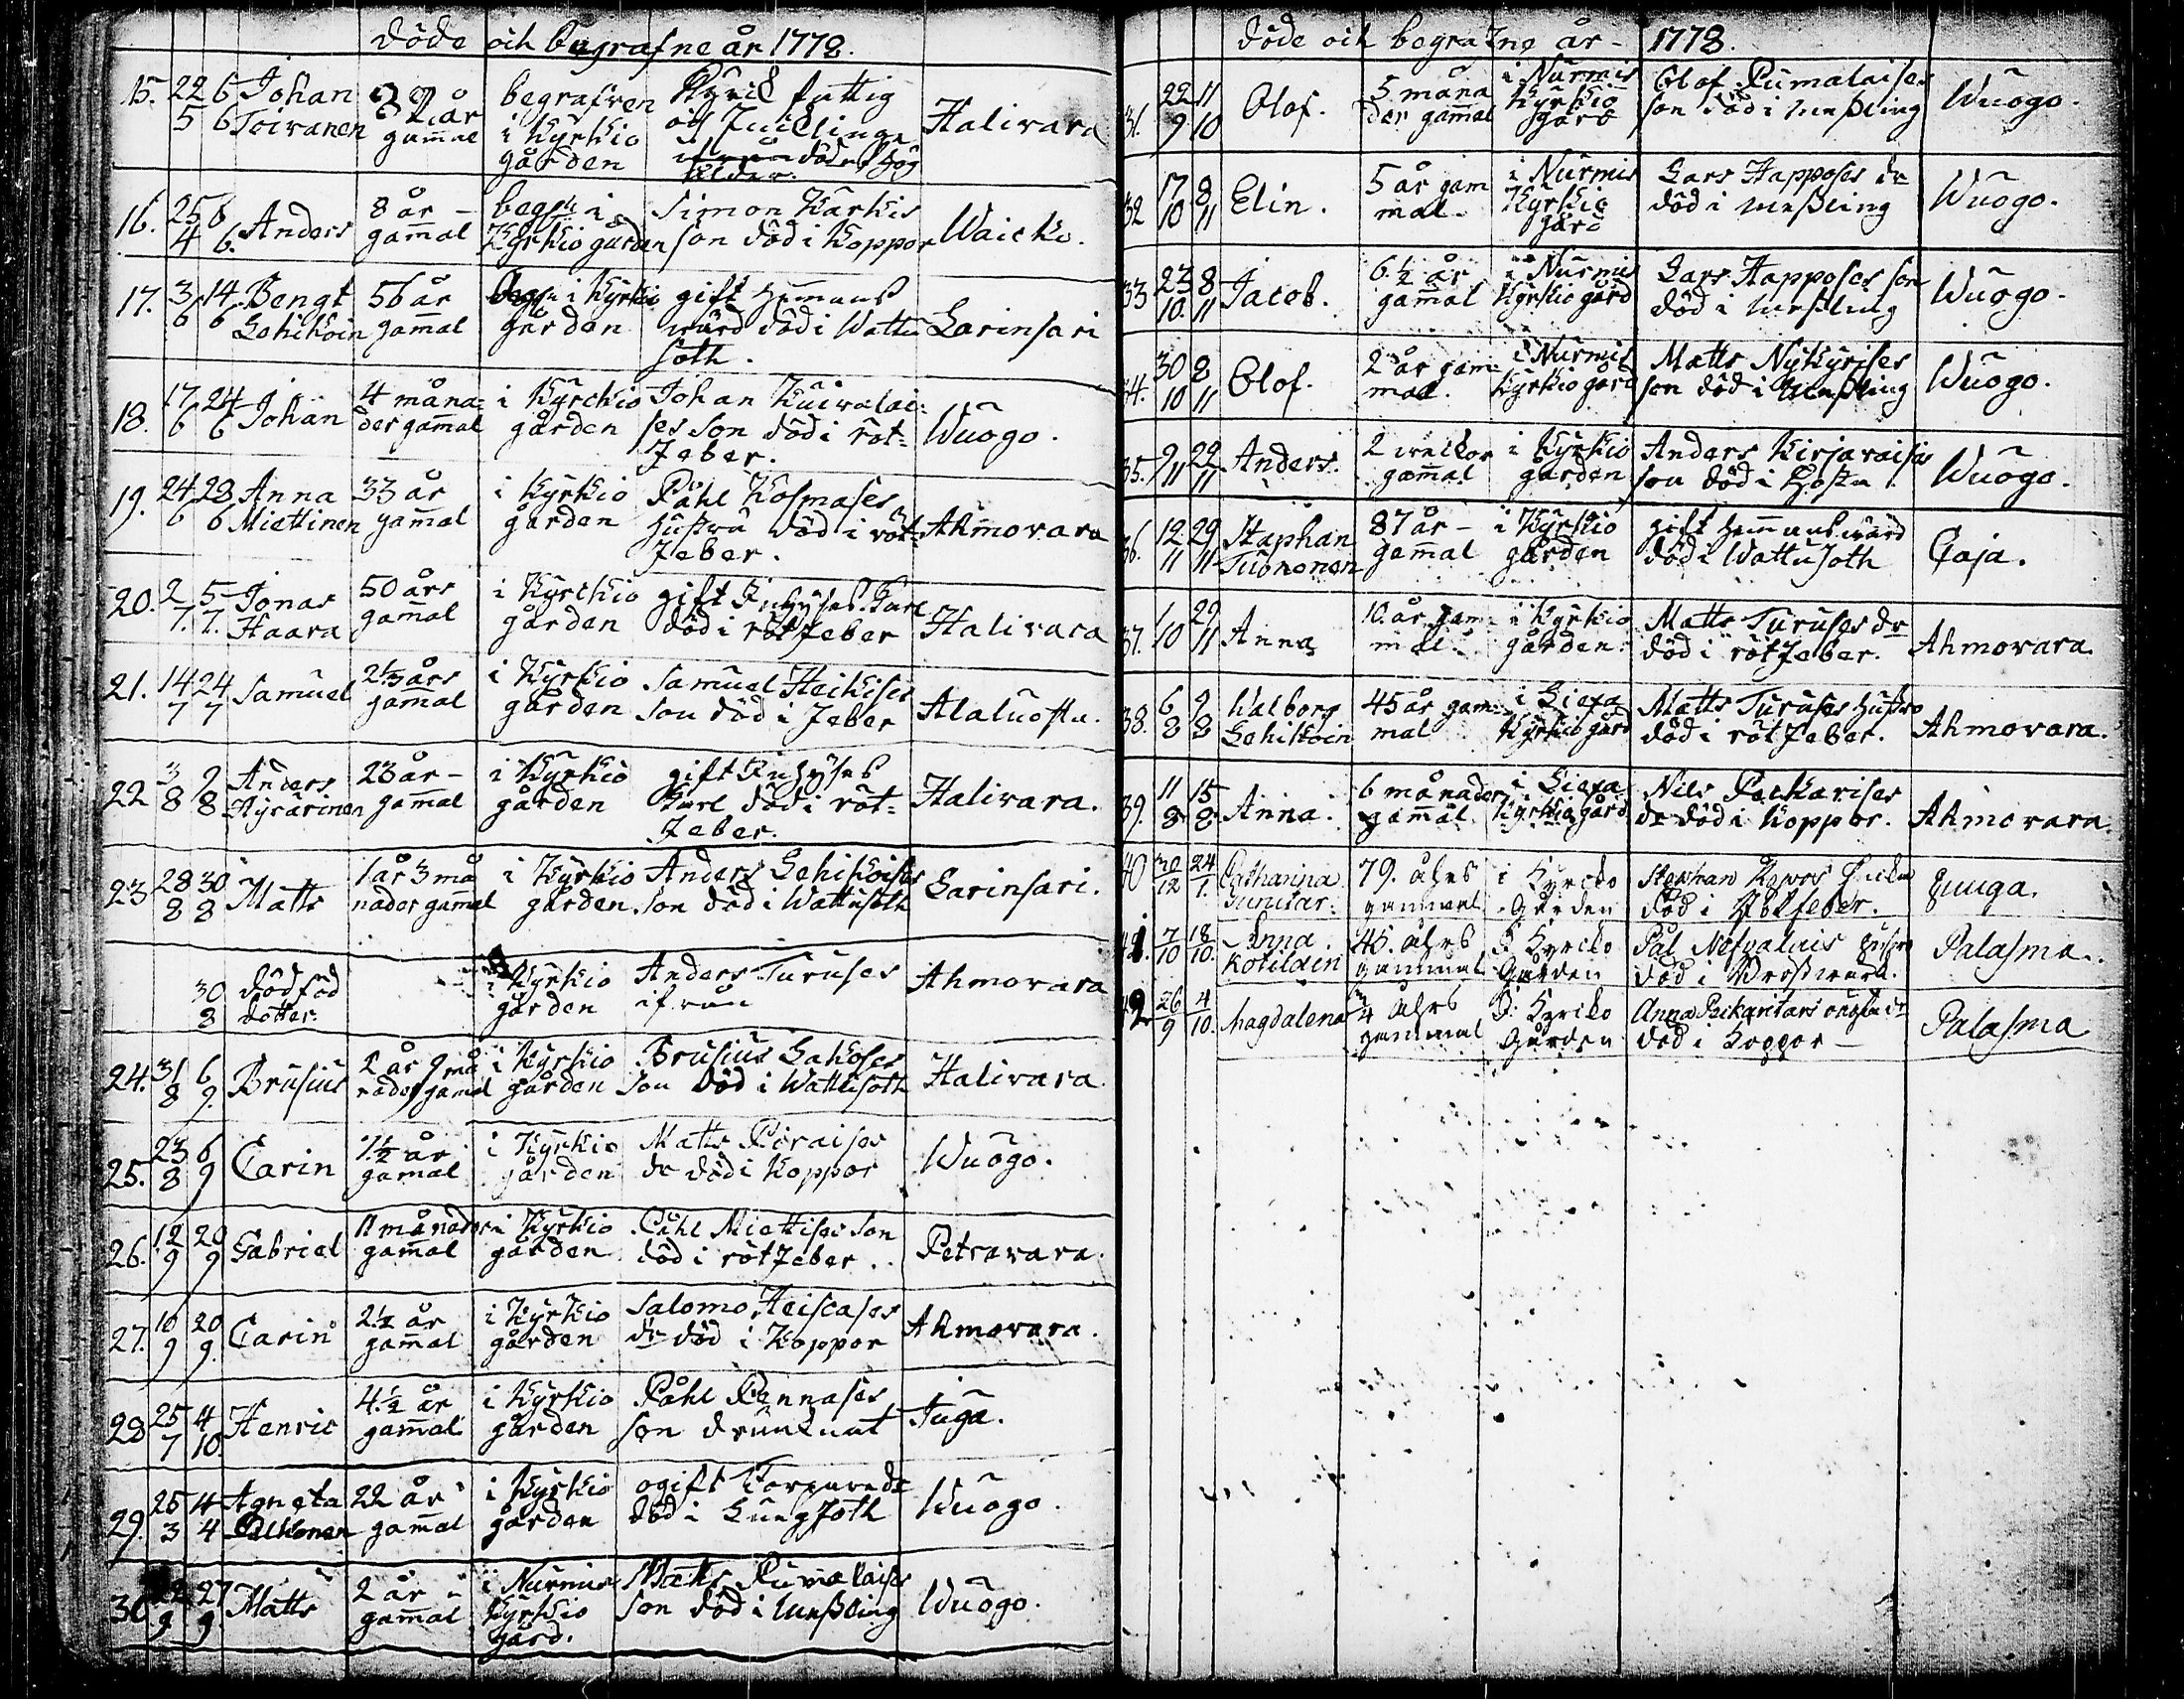 döde och begrafne år 1778.
15. 22/5 6/6 Johan Toivanen 82 år gam̄al begrafven i Kyrkio gården fattig död Hög ålder Halivara
16. 25/4 6/6. Anders 8 år gam̄al begr: i Kyrkio gården Simon Karkis son död i Koppor Waicko.
17. 3/6 14/6 Bengt Lehikoin 56 år gam̄al begr: i Kyrkio gården gift Hem̄ans wärd död i Wattu soth. Larinsari
18. 17/6 24/6 Johan 4 måna= der gam̄al i Kyrckio gården Johan Kuivalai= ses son död i röt= feber. Wuogo.
19. 24/6 28/6 Anna Miettinen 33 år gam̄al i Kyrkio gården Påhl Kosmases hustru död i röt= feber. Ahmovara
20. 2/7. 5/7. Jonas Haara 50 års gam̄al i Kyrckio gården gift Inhyses Karl död i rötfeber Halivara
21. 14/7 24/7 Samuel 2 1/3 års gam̄al i Kyrkio gården Samuel Heikises son död i feber Alaluosta.
22 3/8 9/8 Anders Hyvärinen 23 år gam̄al i Kyrkio gården gift Inhyses Karl död i röt= feber. Halivara.
23 28/8 30/8 Matts 1 år 3 må nader gam̄al i Kyrkio gården. Anders Lehikoises son död i Wattusoth Larinsari.
30/8 död född dotter. i Kyrkio gården Anders Turuses Ahmovara
24. 31/8 6/9. Brusius 2 år 9 må nader gamal i Kyrkio gården Brusius Lakoses son död i Wattusoth Halivara.
25. 23/8 6/9 Carin 7 1/2 år gamal i Kyrkio gården Matts Poraises dr död i Koppor Wuogo.
26. 12/9 20/9 Gabriel 11 månader gam̄al i Kyrkio gården Påhl Miettises son död i rötfeber. Petravara.
27. 10/9 20/9. Carin 2 1/2 år gam̄al i Kyrkio gården Salomo Heiscases dr död i Koppor Ahmovara.
28 25/7 4/10. Henric 4 1/2 år gam̄al. i Kyrkio gården Påhl Pennases son drunknat Juga.
29. 25/3 4/4 Agneta Pelkonen 22 år gam̄al i Kyrkio gården ogift död i Lungsoth Wuogo.
30. 22/9 27/9. Matts 2 år gam̄al i Nurmis Kyrkio gård. Matts Pumalaises son död i Messling Wuogo.
döde och begrafne år 1778.
31. 22/9 11/10 Olof. 5 måna der gam̄al i Nurmis Kyrkio gård Olof Pumalaises son död i Messling Wuogo.
32 17/10 8/11 Elin. 5 år gam mal. i Nurmis Kyrkio gård Lars Happoses dr död i Messling Wuogo.
33 23/10. 8/11 Jacob. 6 1/2 år gam̄al i Nurmis Kyrkio gård Lars Happoses son död i Messling Wuogo.
34. 30/10 8/11 Olof. 2 år gam= mal. i Nurmis Kyrkio gård Matts Nykyrises son död i Messling Wuogo.
35. 9/11 29/11 Anders. 2 weckor gam̄al i Kyrkio gården Anders Kirjavaises son död i Hosta Wuogo.
36. 12/11 29/11 Staphan Tuononen 87 år gam̄al i Kyrkio gården gift Hem̄ans wärd död i Wattusoth Gaja.
37. 1/10 29/11 Anna 10. år gam= mal. i Kyrkio gården. Matts Turuses dr död i rötfeber. Ahmovara.
38. 6/8 9/8 Walborg Lehikoin 45 år gam= mal i Liexa Kyrkio gård Matts Turuses hustro död i rötfeber. Ahmovara.
39. 11/8 15/8 Anna. 6 månader gam̄al. i Liexa Kyrkio gård Nils Peckarises dr död i Koppor. Ahmovara.
40 30/12 24/1. Catharina 79. åhrs gammal i Kyrcko Gården Stephan enka död i feber. Juuga.
41. 7/10 18/10. Anna Kotilain 45. åhrs gammal I Kyrcko Gården Pål Nefvalais hustru död i Palasma.
42 26/9 4/10. Magdalena 4 åhrs gammal I Kyrcko Gården Anna Peikaritars död i Koppor Palasma